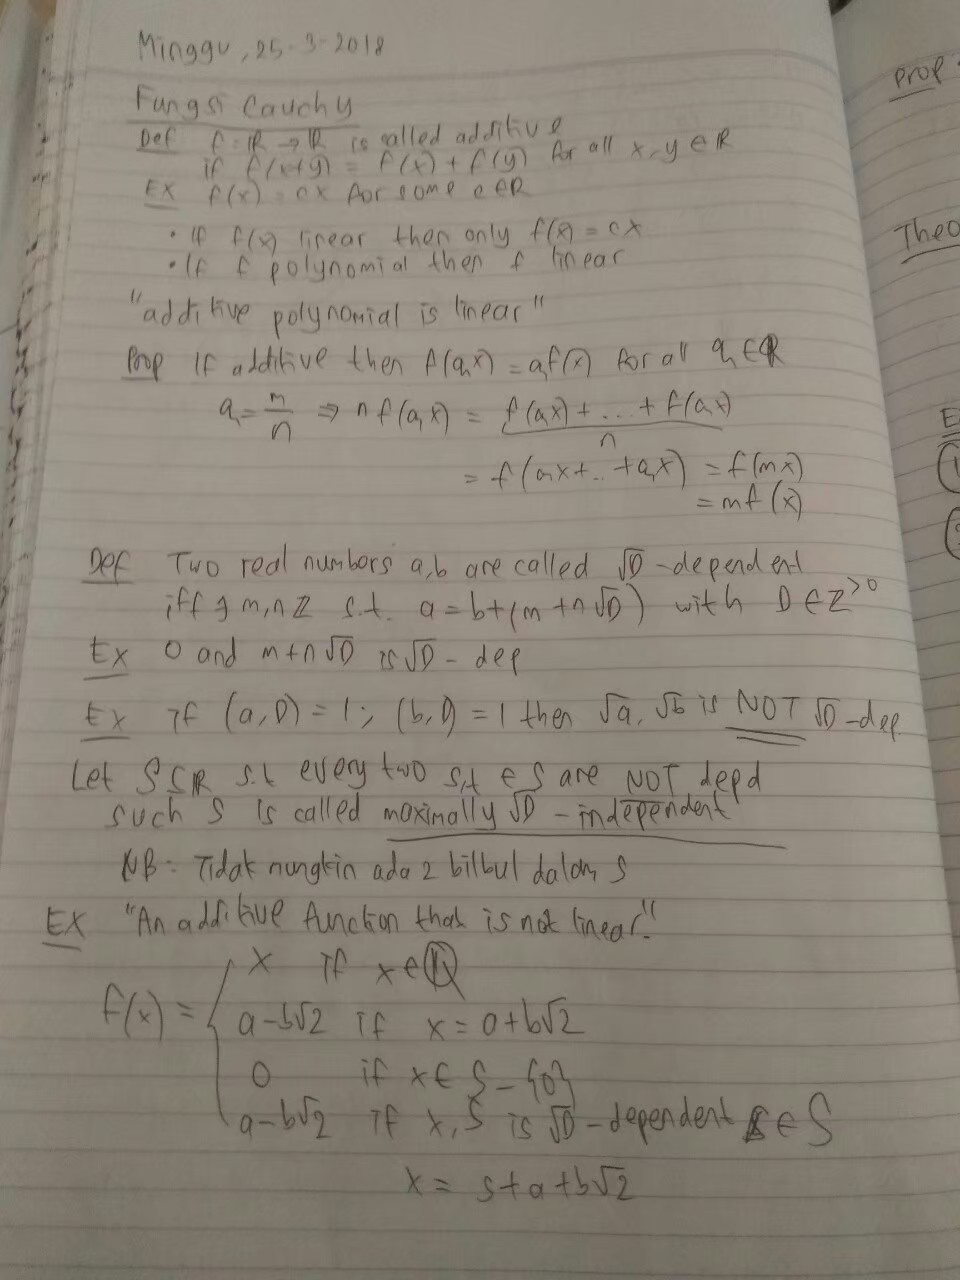 Minggu, 25-3-2018
Fungsi Cauchy
Def f: ℝ → ℝ is called additive
if f(x+y) = f(x) + f(y) for all x, y ∈ ℝ
EX f(x) = cx for some c ∈ ℝ
• If f(x) linear then only f(x) = cx
• If f polynomial then f linear
"additive polynomial is linear"
Prop If additive then f(qx) = qf(x) for all q ∈ ℚ
q = m/n ⇒ n f(qx) = f(qx) + ... + f(qx)
n
= f(qx + .. + qx) = f(mx)
= mf(x)
Def Two real numbers a,b are called √D - dependent
iff ∃ m,n ℤ s.t. a = b + (m + n√D) with D ∈ ℤ^>0
Ex 0 and m+n√D is √D - dep
Ex if (a,D) = 1; (b,D) = 1 then √a, √b is NOT √D-dep
Let S ⊆ ℝ s.t every two s,t ∈ S are NOT depd
such S is called maximally √D - independent
NB: Tidak mungkin ada 2 bilbul dalam S
EX "An additive function that is not linear."
f(x) = { x if x ∈ ℚ
a-b√2 if x = a+b√2
0 if x ∈ S - {0}
a-b√2 if x, S is √D - dependent ∈ S
x = s+a+b√2
Prop
Theo
E